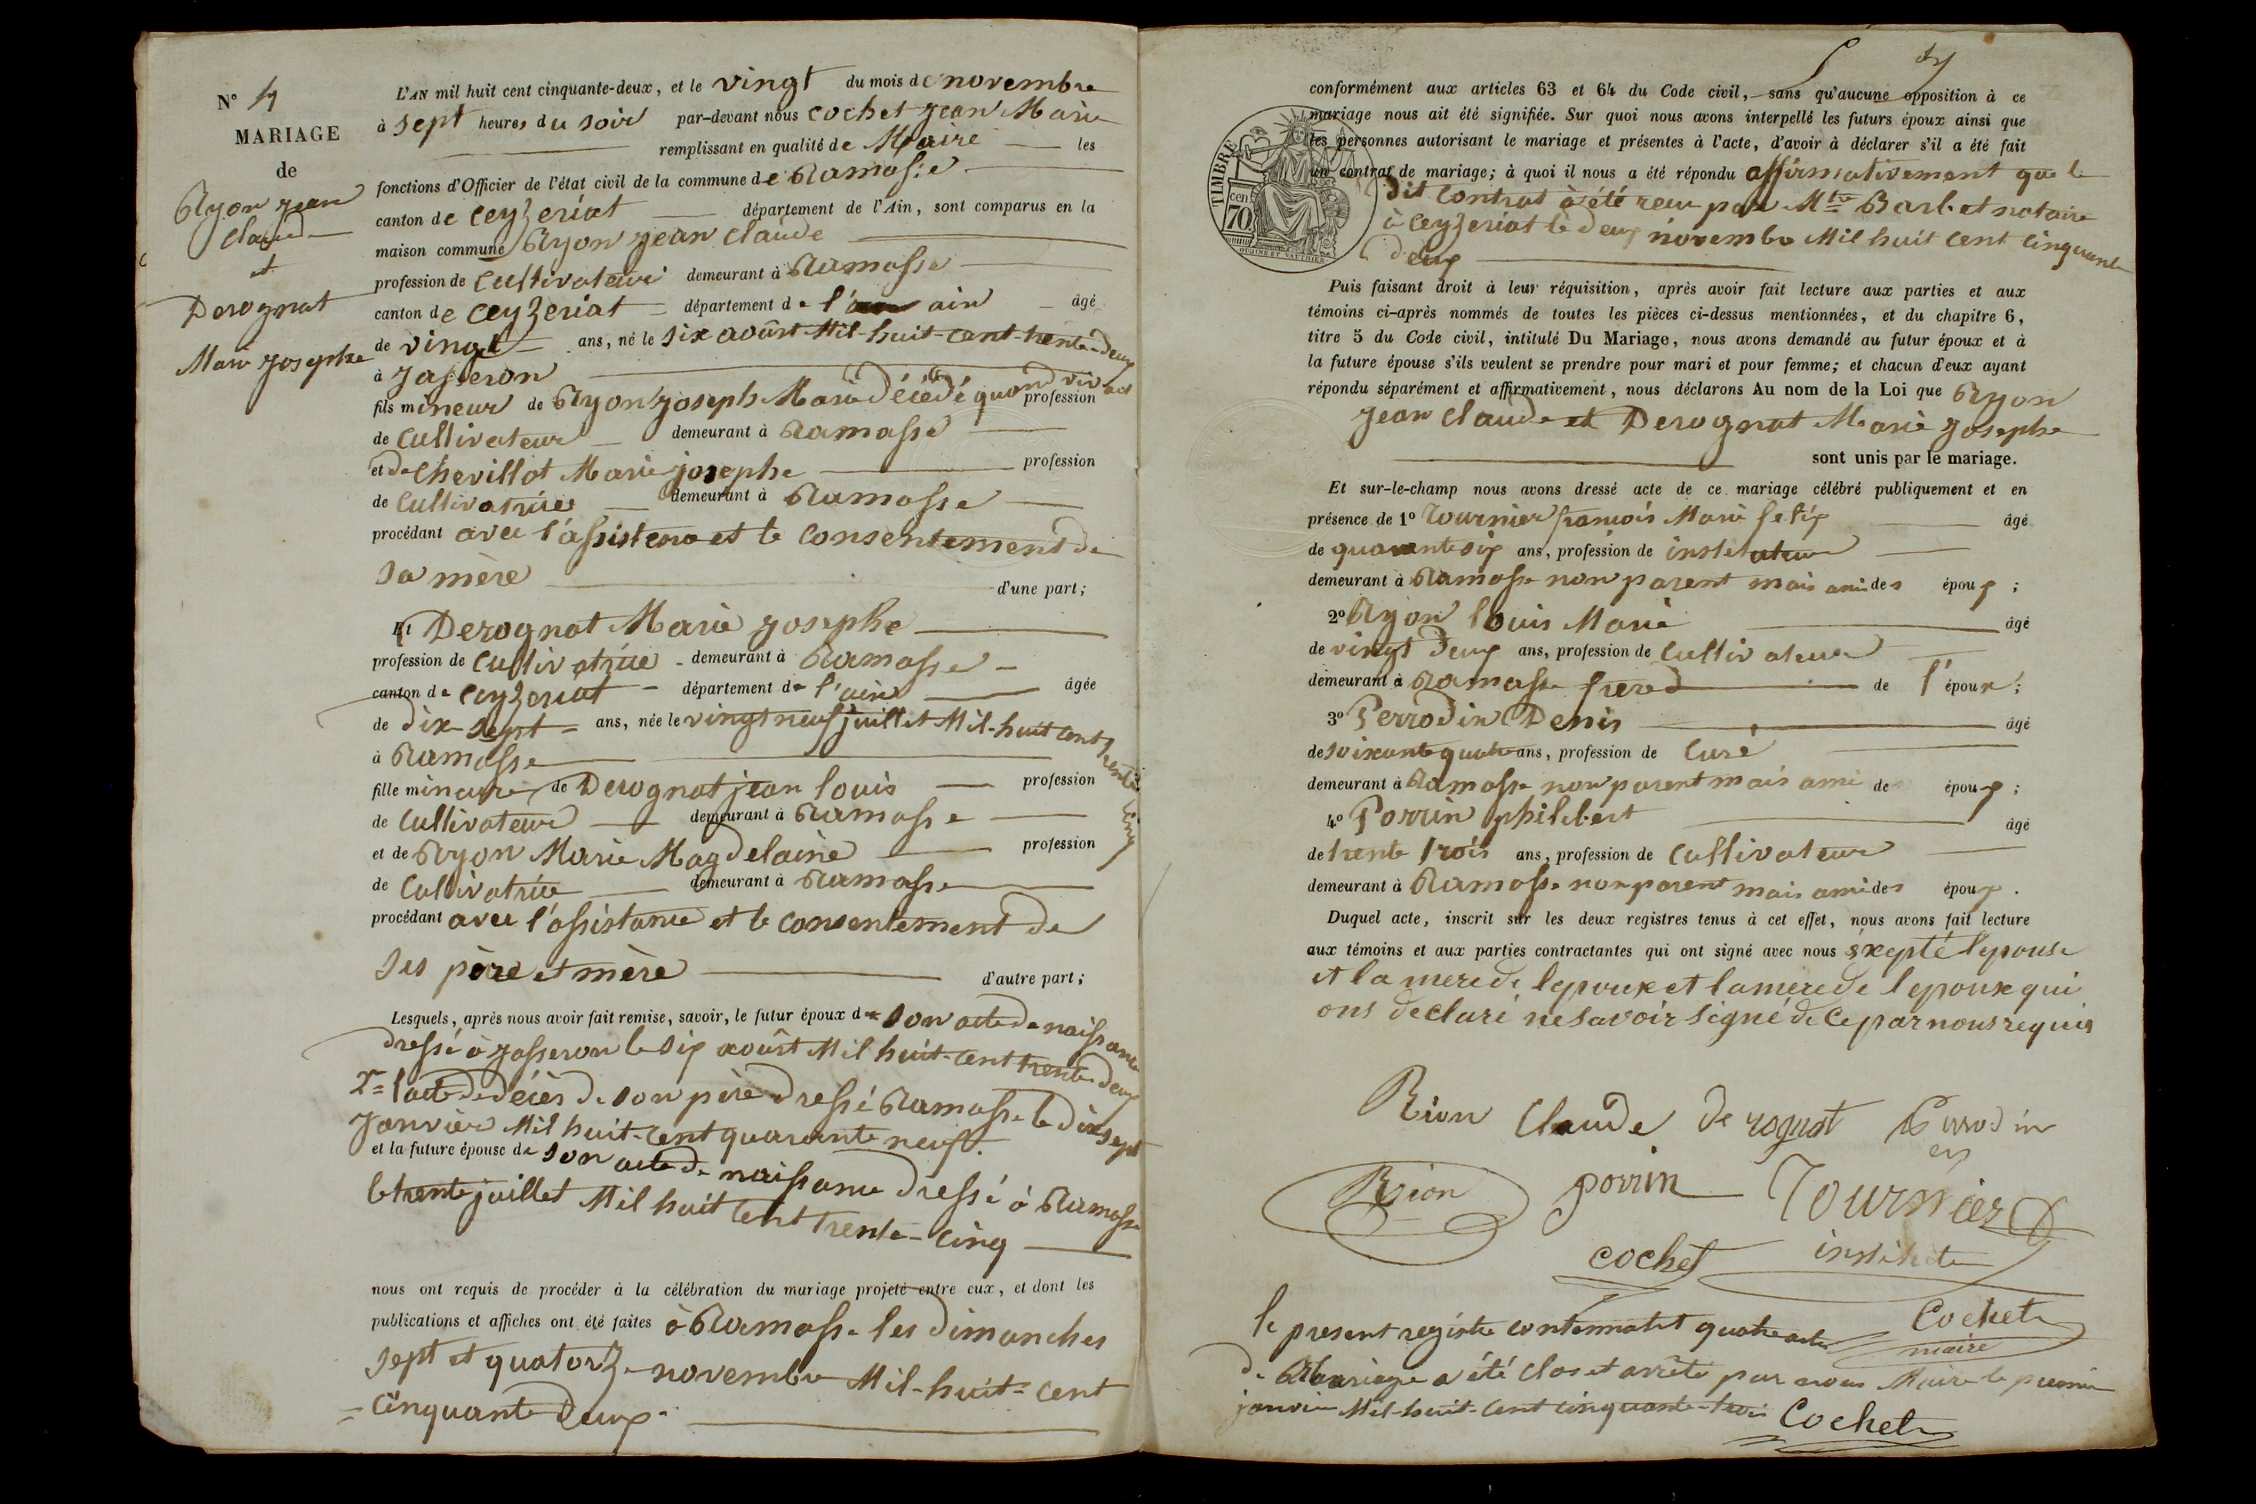 N° 4
MARIAGE
de
Ryon jean
claude
et
Derognat
Marie josephe
L'AN mil huit cent cinquante-deux, et le vingt du mois de novembre
à sept heures du soir par-devant nous cochet jean Marie
remplissant en qualité de Maire les
fonctions d'Officier de l'état civil de la commune de Ramasse
canton de ceyzeriat département de l'Ain, sont comparus en la
maison commune Ryon jean claude
profession de cultivateur demeurant à Ramasse
canton de ceyzeriat département de l' ain âgé
de vingt ans, né le six août Mil-huit-cent-trente-deux
à jasseron
fils mineur de Ryon joseph Marie décédé quand vivant profession
de cultivateur demeurant à Ramasse
et de chevillot Marie josephe profession
de cultivatrice demeurant à Ramasse
procédant avec l'assistance et le consentement de
sa mère d'une part;
Et Derognat Marie josephe
profession de cultivatrice demeurant à Ramasse
canton de ceyzeriat département de l'ain âgée
de dix-sept ans, née le vingt neuf juillet Mil-huit cent trente cinq
à Ramasse
fille mineure de Derognat jean louis profession
de cultivateur demeurant à Ramasse
et de Ryon Marie Magdelaine profession
de cultivatrice demeurant à Ramasse
procédant avec l'assistance et le consentement de
ses père et mère d'autre part;
Lesquels, après nous avoir fait remise, savoir, le futur époux de son acte de naissance
dressé à jasseron le six août Mil huit-cent trente-deux
2° l'acte de décès de son père dressé Ramasse le dix sept
janvier Mil huit-cent quarante neuf.
et la future épouse de son acte de naissance dressé à Ramasse
le trente juillet Mil huit cent trente-cinq
nous ont requis de procéder à la célébration du mariage projeté entre eux, et dont les
publications et affiches ont été faites à Ramasse les dimanches
sept et quatorze novembre Mil-huit-cent
cinquante deux.
conformément aux articles 63 et 64 du Code civil, sans qu'aucune opposition à ce
mariage nous ait été signifiée. Sur quoi nous avons interpellé les futurs époux ainsi que
les personnes autorisant le mariage et présentes à l'acte, d'avoir à déclarer s'il a été fait
un contrat de mariage; à quoi il nous a été répondu affirmativement que le
dit contrat à été reçu par Mtre Barbet notaire
à ceyzeriat le deux novembre Mil huit cent cinquante
deux
TIMBRE
70 cen
Puis faisant droit à leur réquisition, après avoir fait lecture aux parties et aux
témoins ci-après nommés de toutes les pièces ci-dessus mentionnées, et du chapitre 6,
titre 5 du Code civil, intitulé Du Mariage, nous avons demandé au futur époux et à
la future épouse s'ils veulent se prendre pour mari et pour femme; et chacun d'eux ayant
répondu séparément et affirmativement, nous déclarons Au nom de la Loi que Ryon
jean claude et Derognat Marie josephe
sont unis par le mariage.
Et sur-le-champ nous avons dressé acte de ce mariage célébré publiquement et en
présence de 1° Tournier françois Marie felix âgé
de quarante six ans, profession de instituteur
demeurant à Ramasse non parent mais ami des époux;
2° Ryon louis Marie âgé
de vingt deux ans, profession de cultivateur
demeurant à Ramasse frere de l'époux;
3° Perrodin Denis âgé
de soixante quatre ans, profession de curé
demeurant à Ramasse non parent mais ami des époux;
4° Porrin philibert âgé
de trente trois ans, profession de cultivateur
demeurant à Ramasse non parent mais ami des époux.
Duquel acte, inscrit sur les deux registres tenus à cet effet, nous avons fait lecture
aux témoins et aux parties contractantes qui ont signé avec nous éxcepté lepouse
et la mere de lepouxe et la mere de l epouse qui
ons declaré ne savoir signé de ce par nous requis
Rion Claude de rognat Perrodin
Rion porrin Tournier
cochet institut
le present registre contennatnt quatre actes Cochet
maire
de Mariage a été clos et arrêté par nous Maire le premier
janvier Mil-huit-cent cinquante-trois Cochet